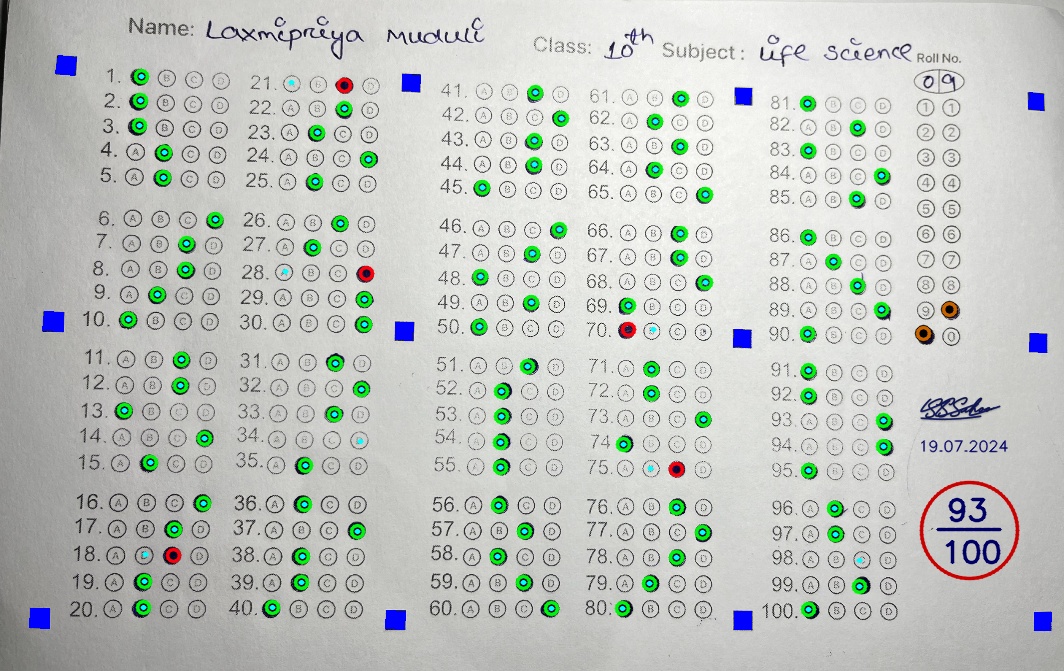 Name: Laxmipriya Muduli Class: 10th Subject: Life science Roll No.
09
1. B C D
2. B C D
3. B C D
4. A C D
5. A C D
6. A B C
7. A B D
8. A B D
9. A C D
10. B C D
11. A B D
12. A B D
13. B C D
14. A B C
15. A C D
16. A B C
17. A B D
18. A D
19. A C D
20. A C D
21. B D
22. A B D
23. A C D
24. A B C
25. A C D
26. A B D
27. A C D
28. A B C
29. A B C
30. A B C
31. A B D
32. A B C
33. A B D
34. A B C
35. A C D
36. A C D
37. A B C
38. A C D
39. A C D
40. B C D
41. A B D
42. A B C
43. A B D
44. A B D
45. B C D
46. A B C
47. A B D
48. B C D
49. A B D
50. B C D
51. A B D
52. A C D
53. A C D
54. A C D
55. A C D
56. A C D
57. A B D
58. A C D
59. A B D
60. A B C
61. A B D
62. A C D
63. A B D
64. A C D
65. A B C
66. A B D
67. A B D
68. A B C
69. B C D
70. C D
71. A C D
72. A C D
73. A B C
74. B C D
75. A D
76. A B D
77. A B C
78. A B D
79. A C D
80. B C D
81. B C D
82. A B D
83. B C D
84. A B C
85. A B D
86. B C D
87. A C D
88. A B D
89. A B C
90. B C D
91. B C D
92. B C D
93. A B C
94. A B C
95. B C D
96. A C D
97. A C D
98. A B D
99. A B D
100. B C D
1 1
2 2
3 3
4 4
5 5
6 6
7 7
8 8
9
0
19.07.2024
93
100